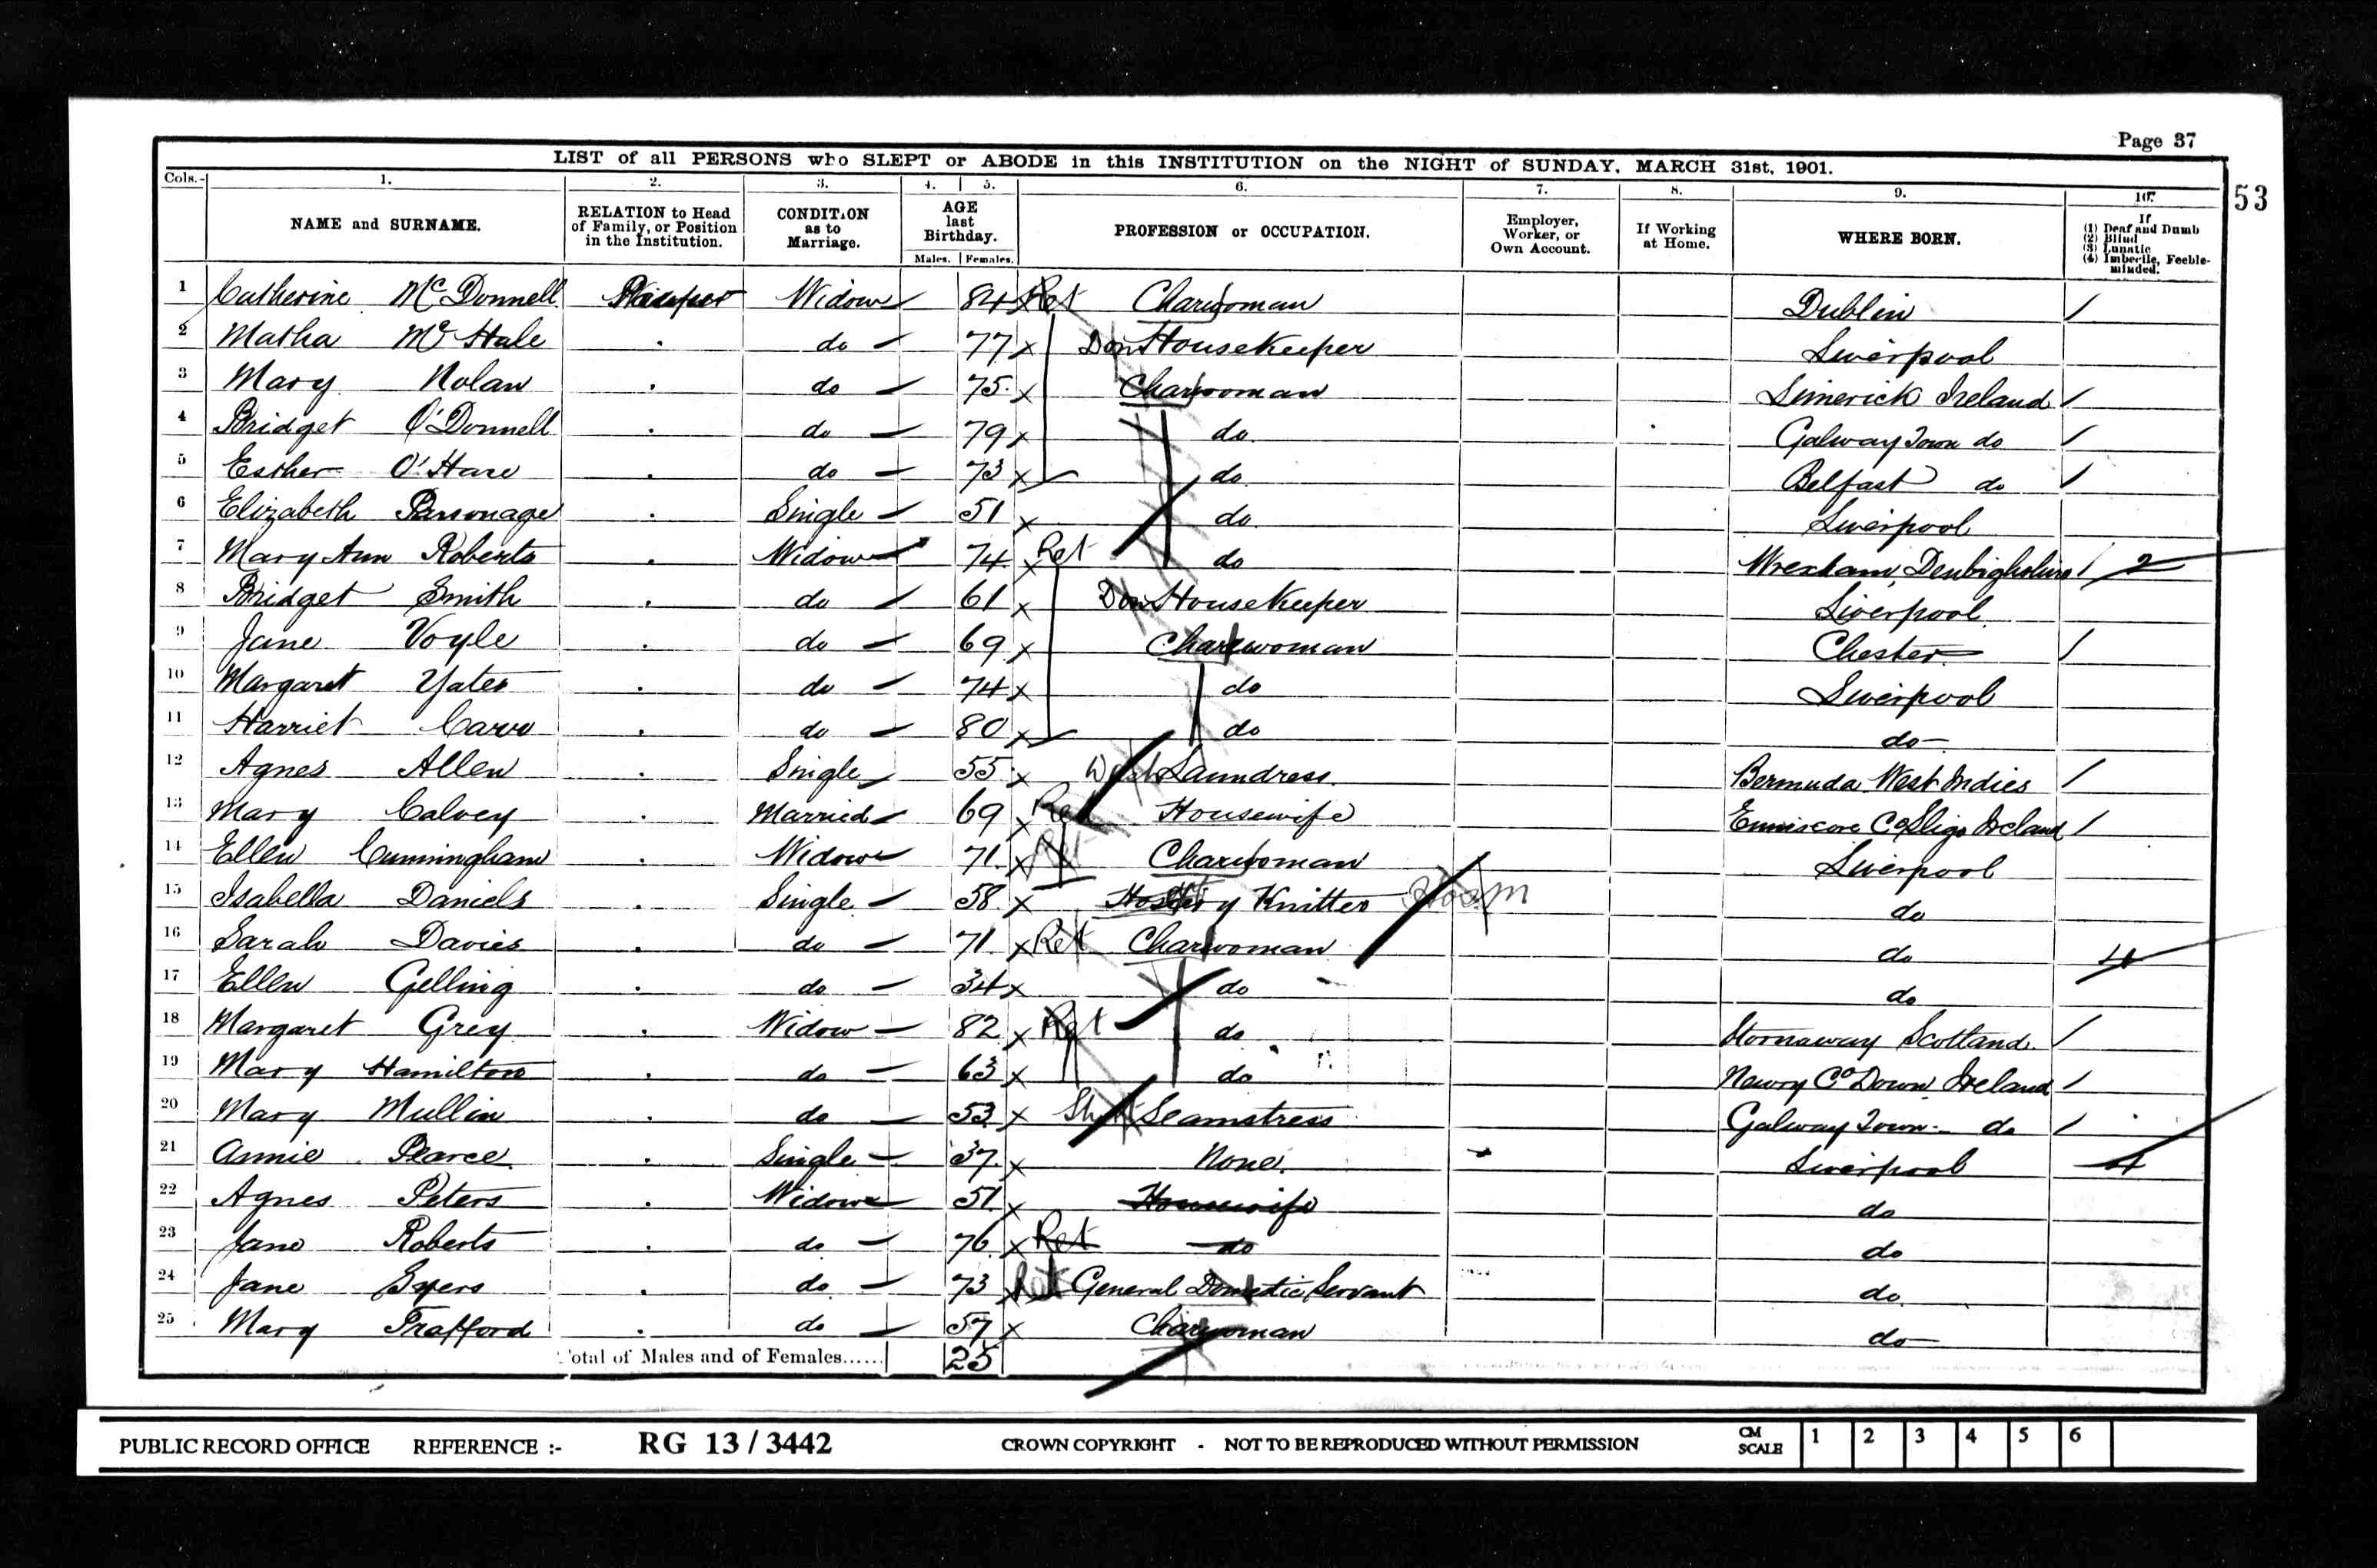 Page 37
LIST of all PERSONS who SLEPT or ABODE in this INSTITUTION on the NIGHT of SUNDAY, MARCH 31st, 1901.
53
Cols.- 1. 2. 3. 4. 5. 6. 7. 8. 9. 10.
NAME and SURNAME. RELATION to Head of Family, or Position in the Institution. CONDITION as to Marriage. AGE last Birthday. Males. Females. PROFESSION or OCCUPATION. Employer, Worker, or Own Account. If Working at Home. WHERE BORN. If (1) Deaf and Dumb (2) Blind (3) Lunatic (4) Imbecile, Feeble-minded.
1 Catherine McDonnell Pauper Widow 84 x Ret Charwoman Dublin /
2 Matha McHale . do 77 x Dom Housekeeper Liverpool
3 Mary Nolan . do 75 x Charwoman Limerick Ireland /
4 Bridget O'Donnell . do 79 x do Galway Town do /
5 Esther O'Hare . do 73 x do Belfast do /
6 Elizabeth Parsonage . Single 51 x do Liverpool
7 Mary Ann Roberts . Widow 74 x Ret do Wrexham, Denbighshire / 2
8 Bridget Smith . do 61 x Dom Housekeeper Liverpool
9 Jane Voyle . do 69 x Charwoman Chester /
10 Margaret Yates . do 74 x do Liverpool
11 Harriet . do 80 x do do
12 Agnes Allen . Single 55 x Wash Laundress Bermuda West Indies /
13 Mary Calvey . Married 69 x Ret Housewife Enniscore Co Sligo Ireland /
14 Ellen Cunningham . Widow 71 x Charwoman Liverpool
15 Isabella Daniels . Single 58 x Hosiery Knitter do
16 Sarah Davies . do 71 x Ret Charwoman do 4
17 Ellen Gelling . do 34 x do do
18 Margaret Grey . Widow 82 x Ret do Stornaway Scotland /
19 Mary Hamilton . do 63 x do Newry Co Down Ireland /
20 Mary Mullin . do 53 x Seamstress Galway Town do /
21 Annie Pearce . Single 37 x None. Liverpool 4
22 Agnes Peters . Widow 51 x Housewife do
23 Jane Roberts . do 76 x Ret do do
24 Jane Syers . do 73 x Ret General Domestic Servant do
25 Mary Trafford . do 57 x Charwoman do
Total of Males and of Females...... 25
PUBLIC RECORD OFFICE REFERENCE :- RG 13 / 3442 CROWN COPYRIGHT - NOT TO BE REPRODUCED WITHOUT PERMISSION CM SCALE 1 2 3 4 5 6